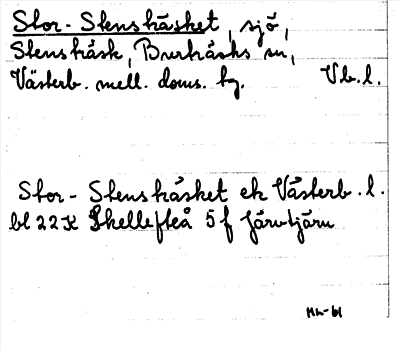 Stor-Stensträsket, sjö,
Stensträsk, Burträsks sn,
Västerb. mell. doms. tg. Vb.l.
Stor-Stensträsket ek Västerb.l.
bl 22K Skellefteå 5f Järvtjärn